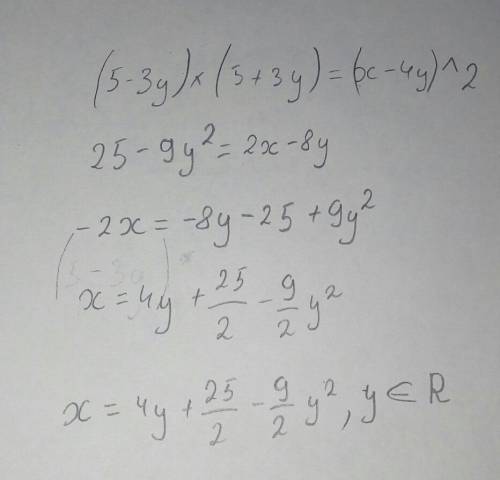 (5-3y)×(5+3y)=(x-4y)^2
25-9y²=2x-8y
-2x=-8y-25+9y²
x=4y+25/2-9/2y²
x=4y+25/2-9/2y², y∈R